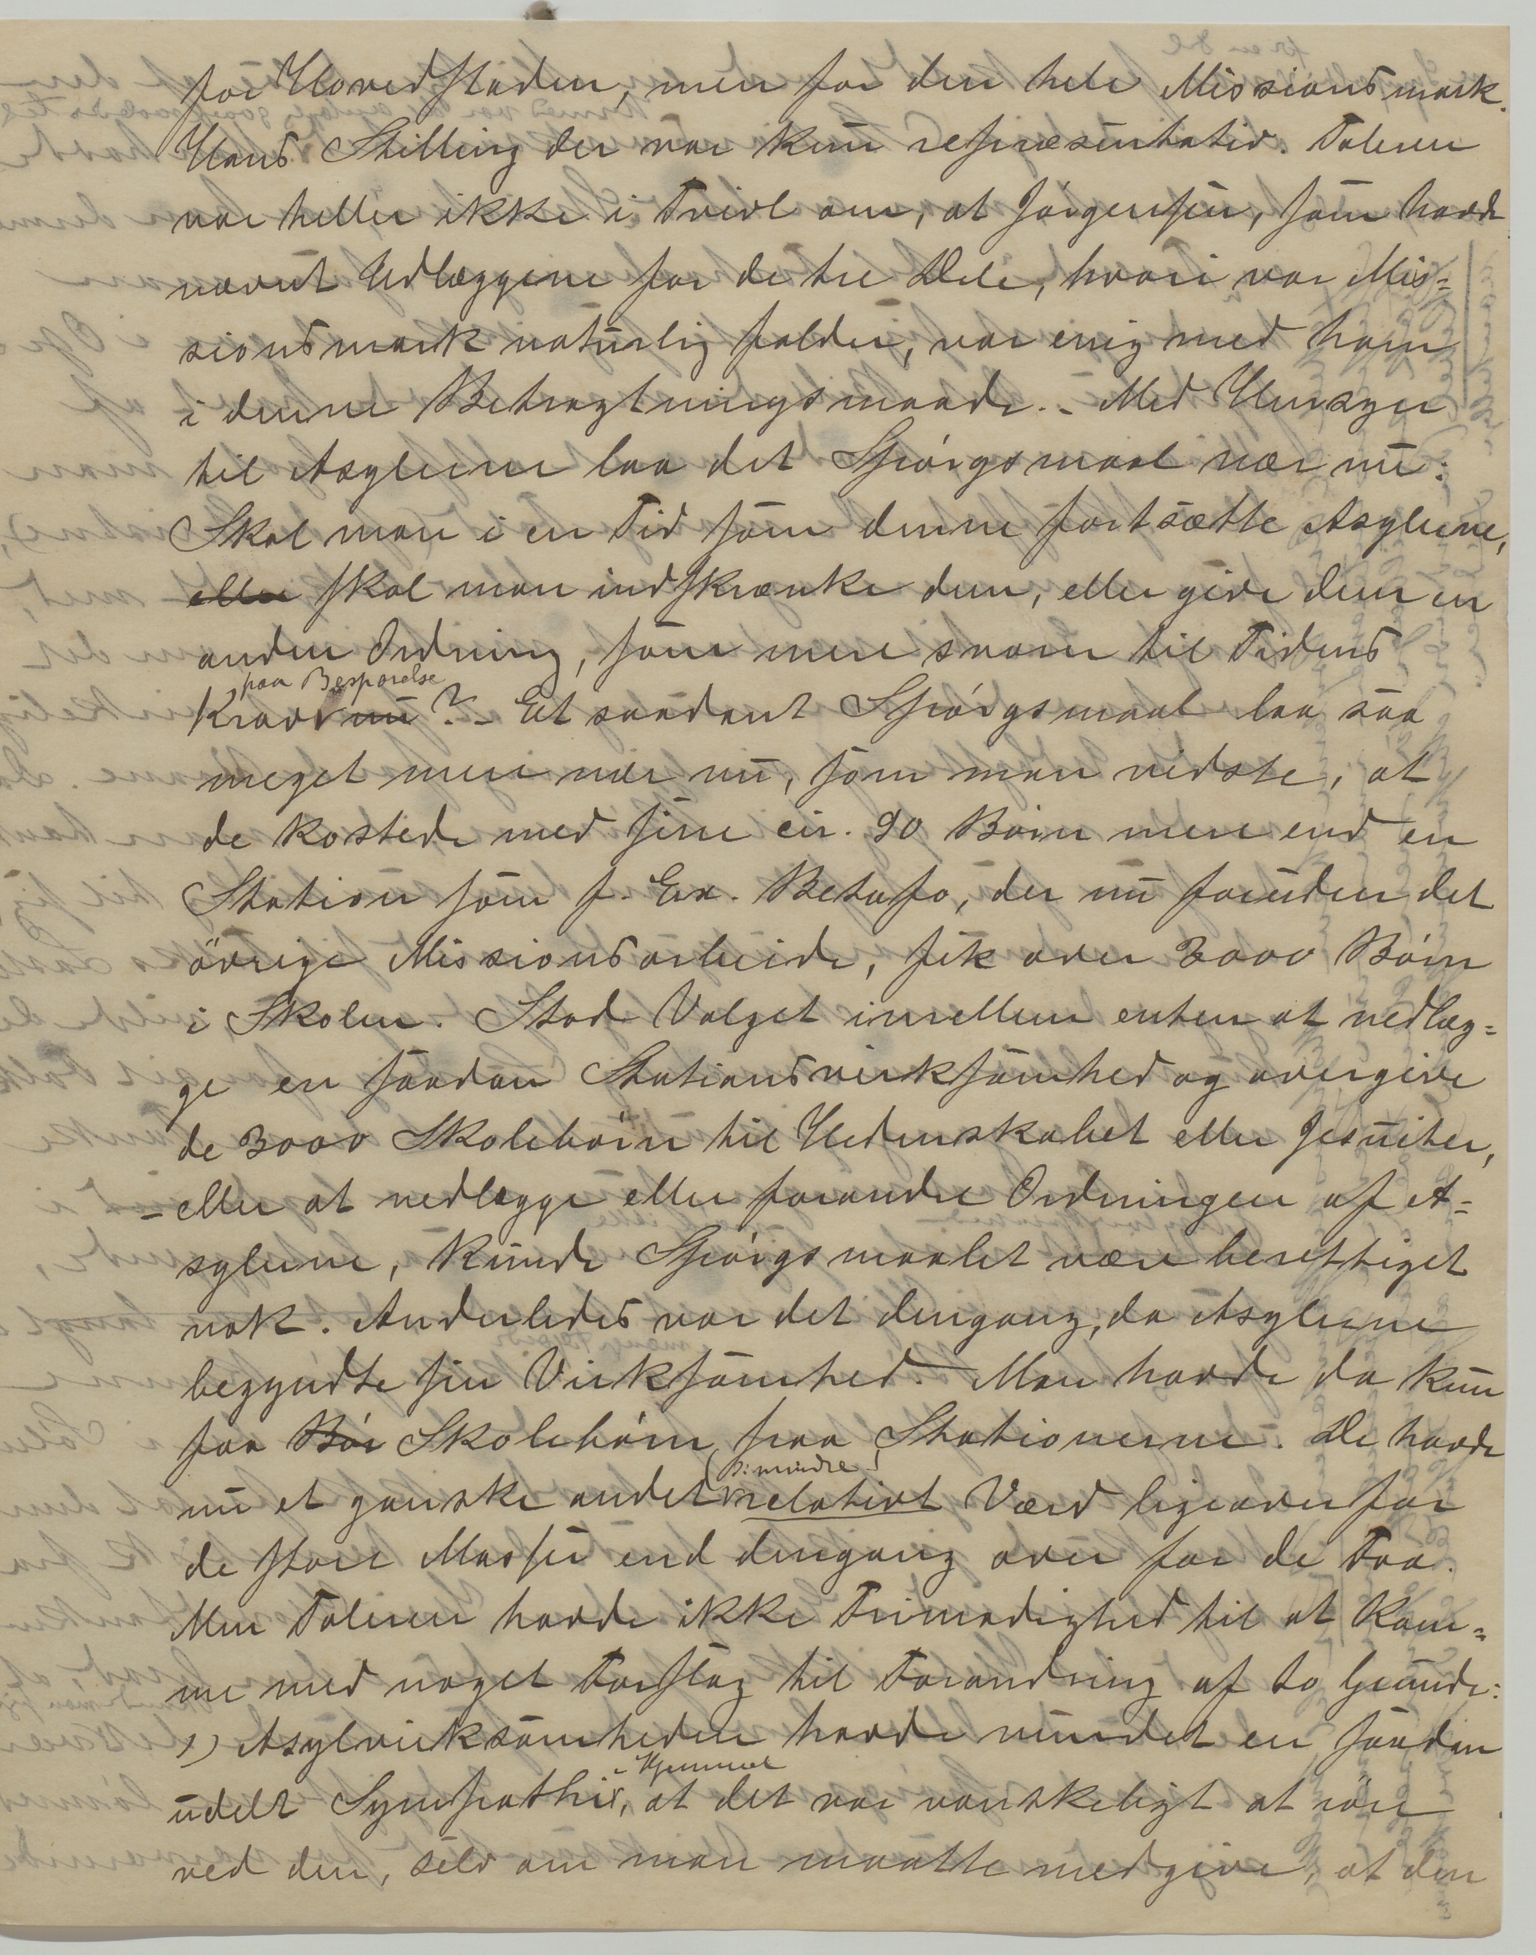 for Hovedstaden, men for den hele Missionsmark.
Hans Stilling der var kun repræsentativ. Taleren
var heller ikke i Tvivl om, at Jørgensen, som havde
nævnt Udlæggene for de tre Dele, hvori vor Mis=
sionsmark naturlig falder, var enig med ham
i denne Betragtningsmaade. – Med Hensyn
til Asylerne laa det Spørgsmaal nær nu:
Skal man i en Tid som denne fortsætte Asylerne,
eller skal man indskrænke dem, eller give dem en
anden Ordning, som mere svarer til Tidens
paa Besparelse
Krav nu? – Et saadant Spørgsmaal laa saa
meget mere nær nu, som man vidste, at
de kostede med sine cir. 90 Børn mere end en
Station som f. Ex. Betafo, der nu foruden det
øvrige Missionsarbeide, fik over 3000 Børn
i Skolen. Stod Valget imellem enten at nedlæg=
ge en saadan Stationsvirksomhed og overgive
de 3000 Skolebørn til Hedenskabet eller Jesuiter,
– eller at nedlægge eller forandre Ordningen af A=
sylerne, kunde Spørgsmaalet være berettiget
nok. Anderledes var det dengang, da Asylerne
begyndte sin Virksomhed. Man havde da kun
faa Bør Skolebørn paa Stationerne. De havde
(ɔ: mindre)
nu et ganske andet relativt Værd ligeoverfor
de store Masser end dengang over for de Faa.
Men Taleren havde ikke Frimodighed til at kom=
me med noget Forslag til Forandring af to Grunde:
1) Asylvirksomheden havde vundet en saadan
i Hjemmet
udelt Sympathi, at det var vanskeligt at røre
ved den, selv om man maatte medgive, at den